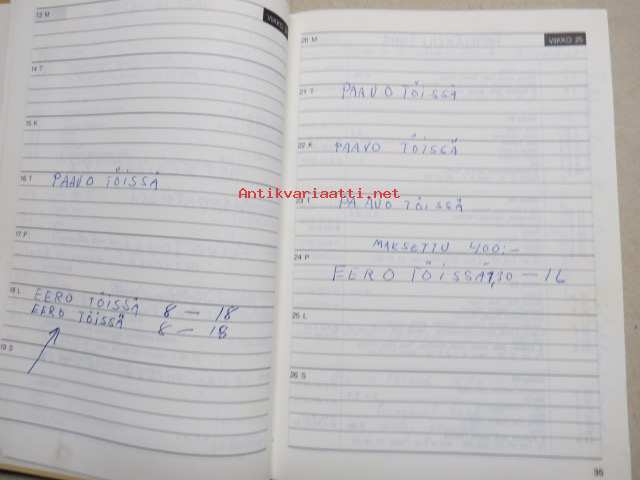 13 M
VIIKKO
14 T
15 K
16 T PAAVO TÖISSÄ
17 P
18 L EERO TÖISSÄ 8 — 18
EERO TÖISSÄ 8 — 18
19 S
20 M VIIKKO 25
21 T PAAVO TÖISSÄ
22 K PAAVO TÖISSÄ
Antikvariaatti.net
23 T PAAVO TÖISSÄ
MAKSETTU 400:-
24 P EERO TÖISSÄ 7,30 — 16
25 L
26 S
95